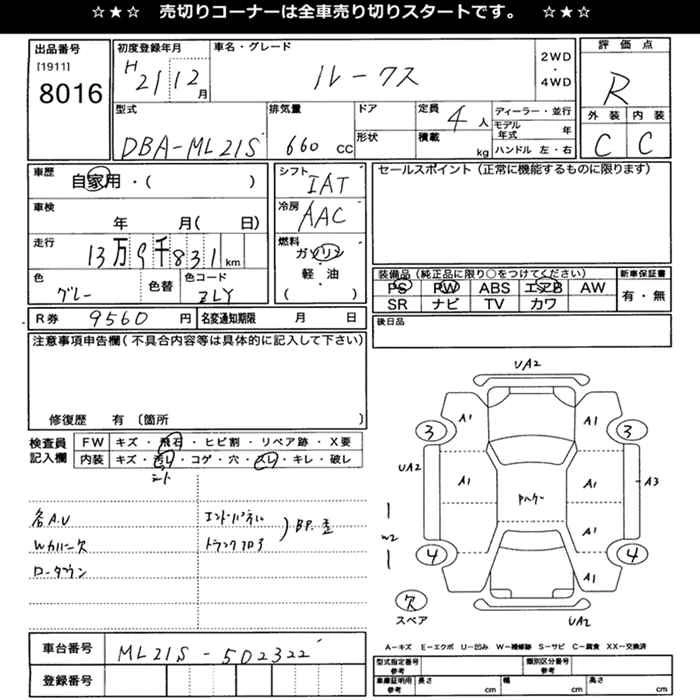 ☆★☆ 売切りコーナーは全車売り切りスタートです。 ☆★☆
出品番号
[1911]
8016
初度登録年月
H21 12月
車名・グレード
ルークス
2WD
・
4WD
評価点
R
外装 内装
C C
型式
DBA-ML21S
排気量
660 CC
ドア
形状
定員
4人
積載
kg
ディーラー・並行
モデル年式 年
ハンドル 左・右
車歴
自家用・( )
車検
年 月( 日)
走行
13万9千831km
色
グレー
色替
色コード
ZLY
シフト
IAT
冷房
AAC
燃料
ガソリン
・
軽油
( )
セールスポイント(正常に機能するものに限ります)
装備品(純正品に限り○をつけてください)
PS PW ABS エアB AW
SR ナビ TV カワ
新車保証書
有・無
R券 9560円 名変通知期限 月 日
後日品
注意事項申告欄(不具合内容等は具体的に記入して下さい)
修復歴 有〔箇所 〕
検査員記入欄
FW キズ・飛石・ヒビ割・リペア跡・X要
内装 キズ・汚レ・コゲ・穴・スレ・キレ・破レ
シート
各A.U
Wカバー欠
ローダウン
エンドパネル
トランクフロア
B.P.歪
UA2
A1 A1
3 3
UA2 A1 A1 A3
W2 A1
4 4
A1
欠
スペア
UA2
A-キズ E-エクボ U-凹み W-補修跡 S-サビ C-腐食 XX-交換済
車台番号 ML21S-502322
登録番号
型式指定番号 参考
類別区分番号 参考
車庫証明用 参考
長さ cm
幅 cm
高さ cm